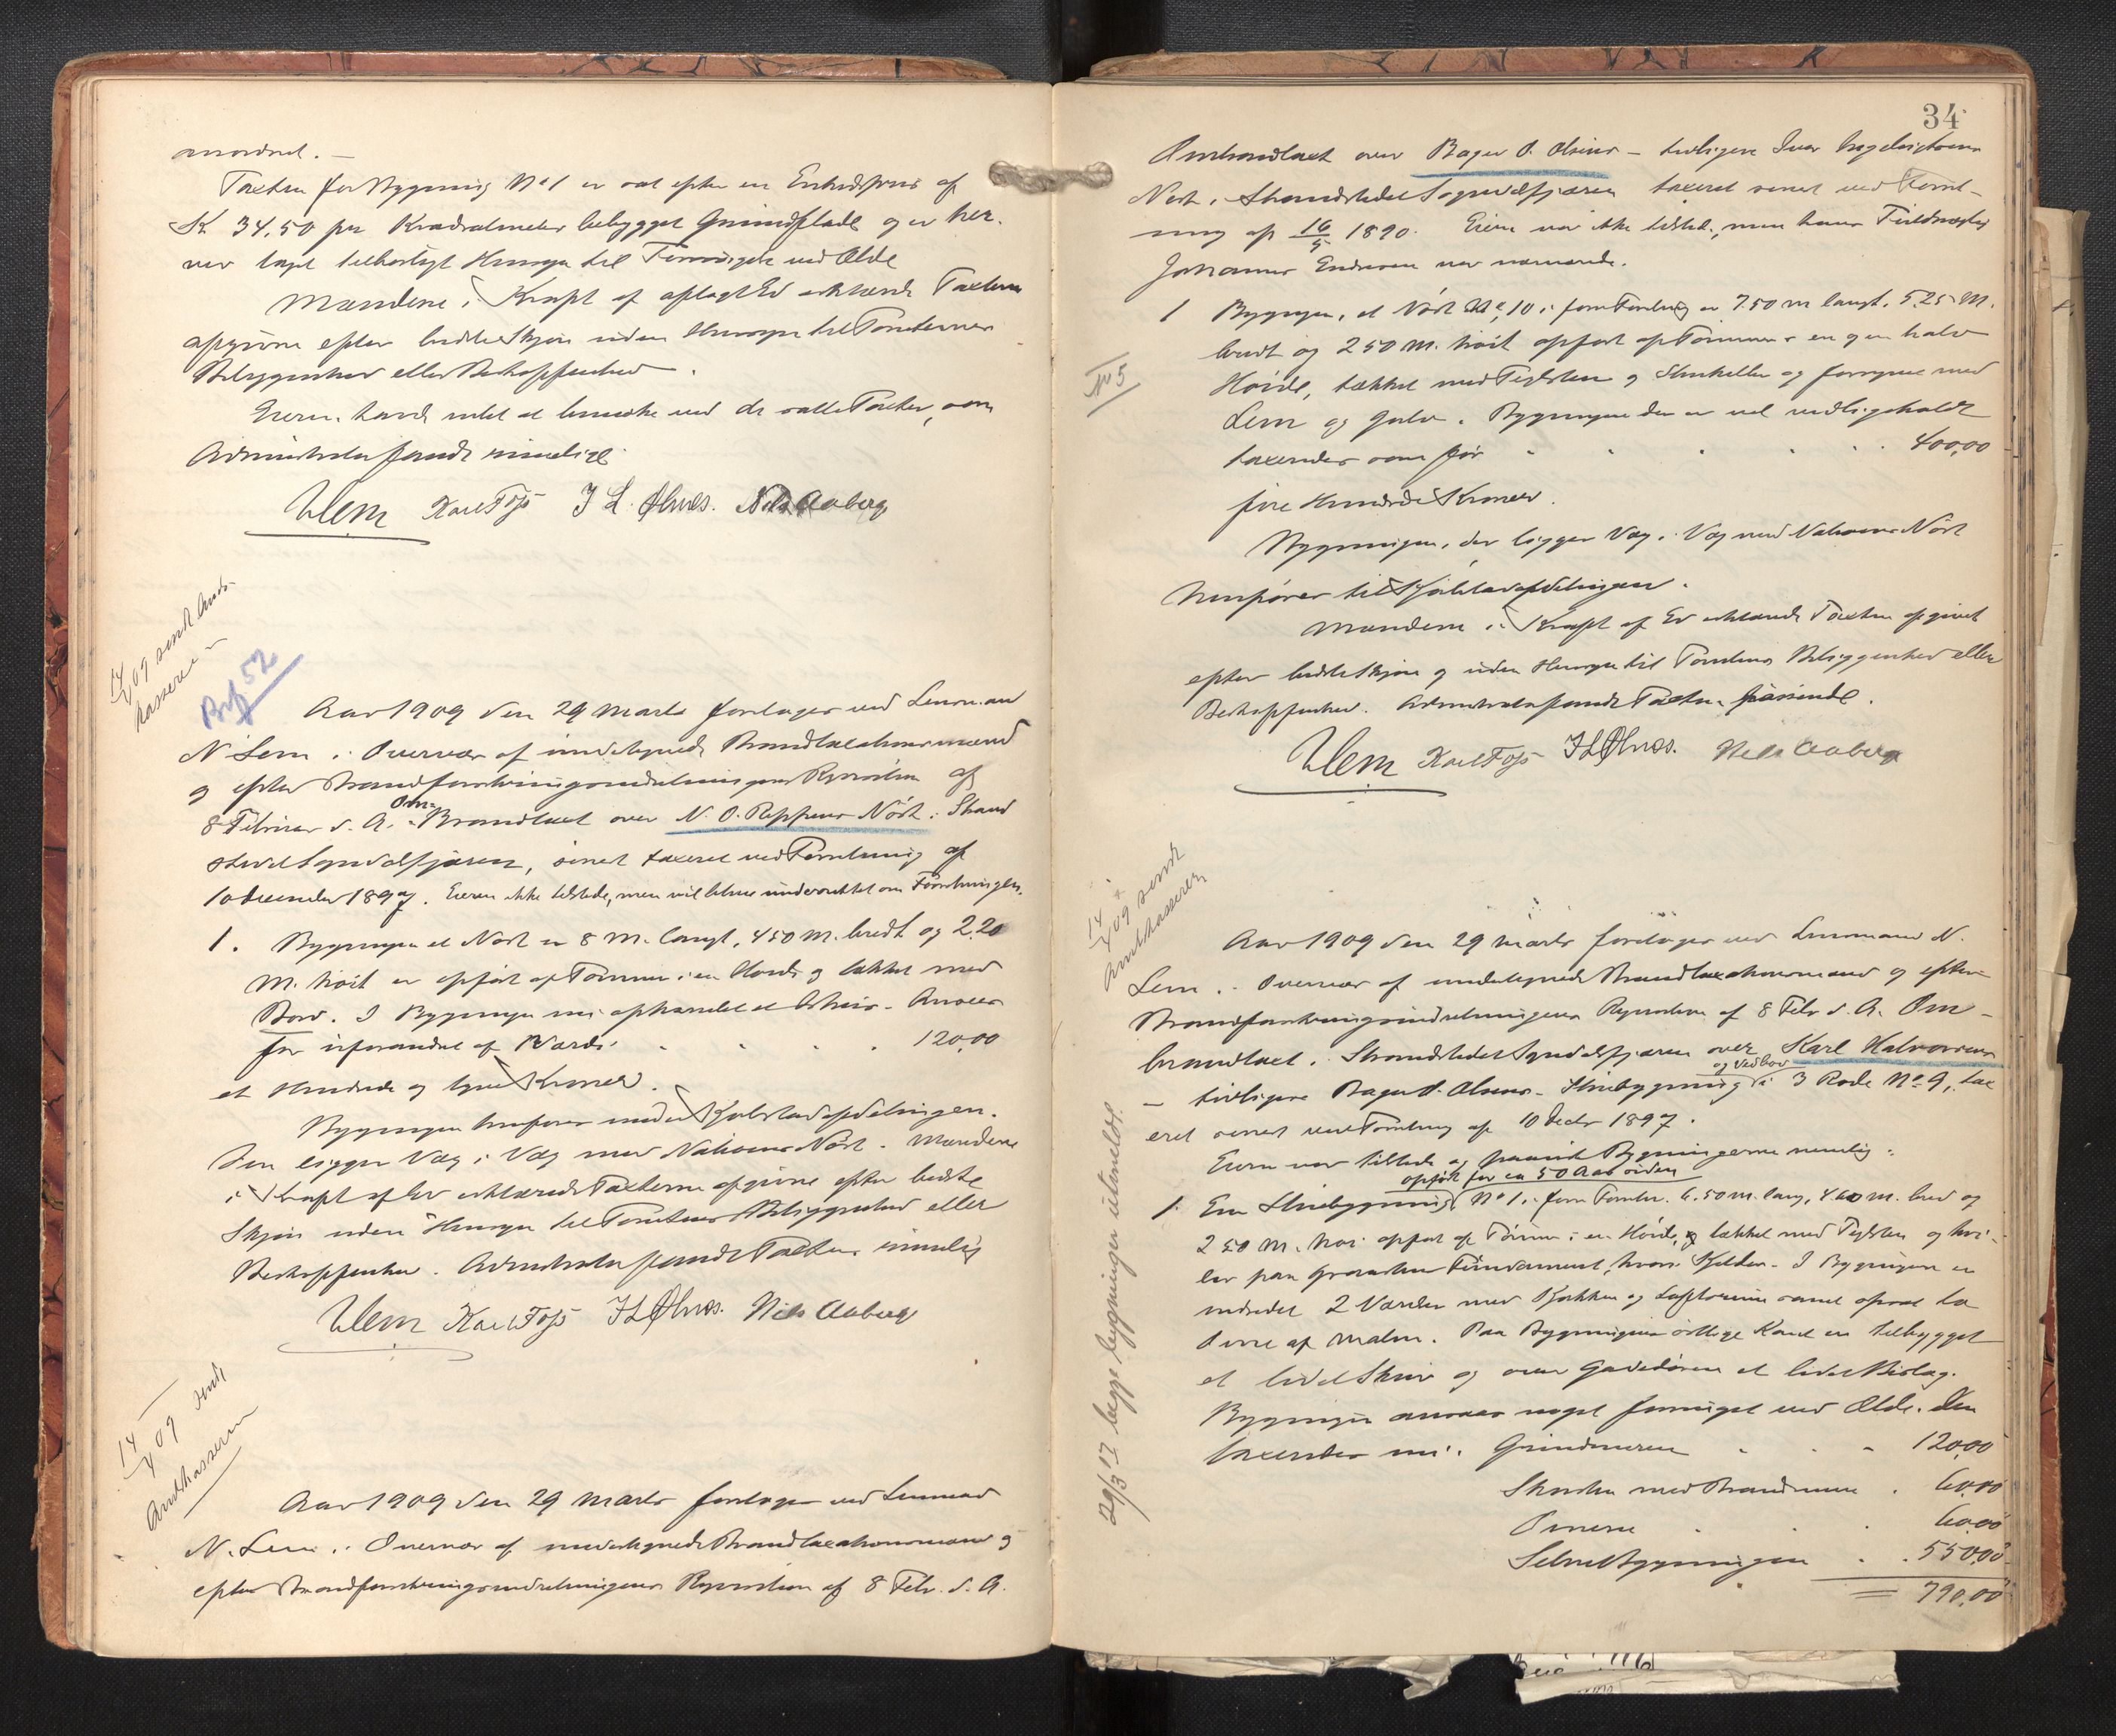 anordnet. —
Taxten for Bygning No 1 er sat efter en Enhedspris af
Kr 34,50 pr Kvadratmeter bebygget Grundflade og er her-
ved taget tilbørligt Hensyn til Forringelse ved Ælde
Mændene i Kraft af aflagt Ed erklærede Taxterne
afgivne efter bedste Skjøn uden Hensyn til Tomternes
Beliggenhed eller Beskaffenhed.
Eieren havde intet at bemerke ved de satte Taxter, som
Administrator fandt rimelige.
NLem Karl Foss J L Ølnes. Nils Aaberg
14/4 09 sendt Amts-
kasseren
Brf 52
Aar 1909 den 29 Marts foretoges ved Lensmand
N Lem i Overvær af undertegnede Brandtaxationsmænd
og efter Brandforsikringsindretningens Rekvisition af
8 Februar d. A. Om-
Brandtaxt over N. O. Reppens Nøst i Strand
stedet Sogndalsfjæren, senest taxeret ved Forretning af
10 December 1897. Eieren ikke tilstede, men vil blive underrettet om Forretningen.
1. Bygningen et Nøst er 8 M. langt, 4 50 M. bredt og 2.20
M. høit er opført af Tømmer i en Høide og tækket med
Bord. I Bygningen er ophandlet et Skur. Ansees
for uforandret af Værdi. 120,00
et Hundrede og tyve Kroner.
Bygningen henføres under Kjøbstadafdelingen.
Den ligger Væg i Væg med Naboens Nøst. Mændene
i Kraft af Ed erklærede Taxterne afgivne efter bedste
Skjøn uden Hensyn til Tomtens Beliggenhed eller
Beskaffenhed. Administrator fandt Taxten rimelig
NLem Karl Foss J L Ølnes. Nils Aaberg
14/4 09 sendt
Amtkasseren
Aar 1909 den 29 Marts foretoges ved Lensmand
N. Lem i Overvær af undertegnede Brandtaxationsmænd og
efter Brandforsikringsindretningens Rekvisition af 8 Febr. d. A.
34
Ombrandtaxt over Bager O. Olsens — tidligere Ivar
Nøst i Strandstedet Sogndalsfjæren taxeret senest ved Forret-
ning af 16/5 1890. Eieren var ikke tilstede, men hans Fuldmægtig
Johannes Endresen var nærværende.
No 5
1 Bygningen, et Nøst No 10 i forr. Forretning er 7.50 m langt, 5.25 M.
bredt og 2 50 M. høit opført af Tømmer i en og en halv
Høide, tækket med Teglsten og Stenheller og forsynet med
Lem og Gulv. Bygningen der er vel vedligeholdt
taxeredes som før 400,00
fire Hundrede Kroner.
Bygningen, der ligger Væg i Væg med Naboens Nøst
henføres til Kjøbstadafdelingen.
Mændene i Kraft af Ed erklærede Taxten afgivet
efter bedste Skjøn og uden Hensyn til Tomtens Beliggenhed eller
Beskaffenhed. Administrator fandt Taxten passende.
NLem Karl Foss J L Ølnes. Nils Aaberg
14/4 09 sendt
Amtkasseren
Aar 1909 den 29 Marts foretoges ved Lensmand N.
Lem i Overvær af undertegnede Brandtaxationsmænd og efter
Brandforsikringsindretningens Rekvisition af 8 Febr d. A. Om-
brandtaxt i Strandstedet Sogndalsfjæren over Karl Halvorsens
og Vedbod
— tidligere Bager O. Olsens — Stuebygning i 3 Rode No 9, tax
eret senest ved Forretning af 10 Decbr 1897.
Eieren var tilstede og paaviste Bygningerne nemlig:
opført for ca 50 Aar siden
1. En Stuebygning No 1 i forr. Forretn. 6.50 m. lang, 4 60 m. bred og
2 50 M. høi opført af Tømmer i en Høide, tækket med Teglsten og hvi-
ler paa Graastens Fundament, hvori Kjelder. I Bygningen er
indredet 2 Værelser med Kjøkken og Loftsrum samt opsat to
Ovne af Malm. Paa Bygningens østlige Kant er tilbygget
et lidet Skur og over Gadedøren et lidet Bislag.
Bygningen ansees noget forringet ved Ælde. Den
taxeredes nu: Grundmuren 120,00
Skorsten med Brandmure 60,00
Ovnene 60,00
Selve Bygningen 550,00
= 790,00
29/3 17 begge bygninger utmeldt.